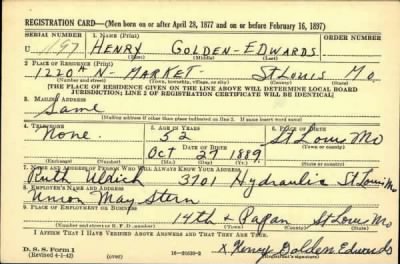 REGISTRATION CARD—(Men born on or after April 28, 1877 and on or before February 16, 1897)
SERIAL NUMBER 1. NAME (Print) ORDER NUMBER
U 1197 HENRY GOLDEN-EDWARDS
(First) (Middle) (Last)
2. PLACE OF RESIDENCE (Print)
1220A N- MARKET- St Louis Mo
(Number and street) (Town, township, village, or city) (County) (State)
[THE PLACE OF RESIDENCE GIVEN ON THE LINE ABOVE WILL DETERMINE LOCAL BOARD
JURISDICTION; LINE 2 OF REGISTRATION CERTIFICATE WILL BE IDENTICAL]
3. MAILING ADDRESS
Same
[Mailing address if other than place indicated on line 2. If same insert word same]
4. TELEPHONE 5. AGE IN YEARS 6. PLACE OF BIRTH
None. 52 St Louis Mo
DATE OF BIRTH (Town or county)
Oct 27 1889
(Exchange) (Number) (Mo.) (Day) (Yr.) (State or country)
7. NAME AND ADDRESS OF PERSON WHO WILL ALWAYS KNOW YOUR ADDRESS
Ruth Ulrich 3701 Hydraulic St Louis Mo
8. EMPLOYER'S NAME AND ADDRESS
Union May Stern
9. PLACE OF EMPLOYMENT OR BUSINESS
14th + Papan St Louis Mo
(Number and street or R. F. D. number) (Town) (County) (State)
I AFFIRM THAT I HAVE VERIFIED ABOVE ANSWERS AND THAT THEY ARE TRUE.
D. S. S. Form 1
(Revised 4-1-42) (over) X Henry Golden Edwards
(Registrant's signature)